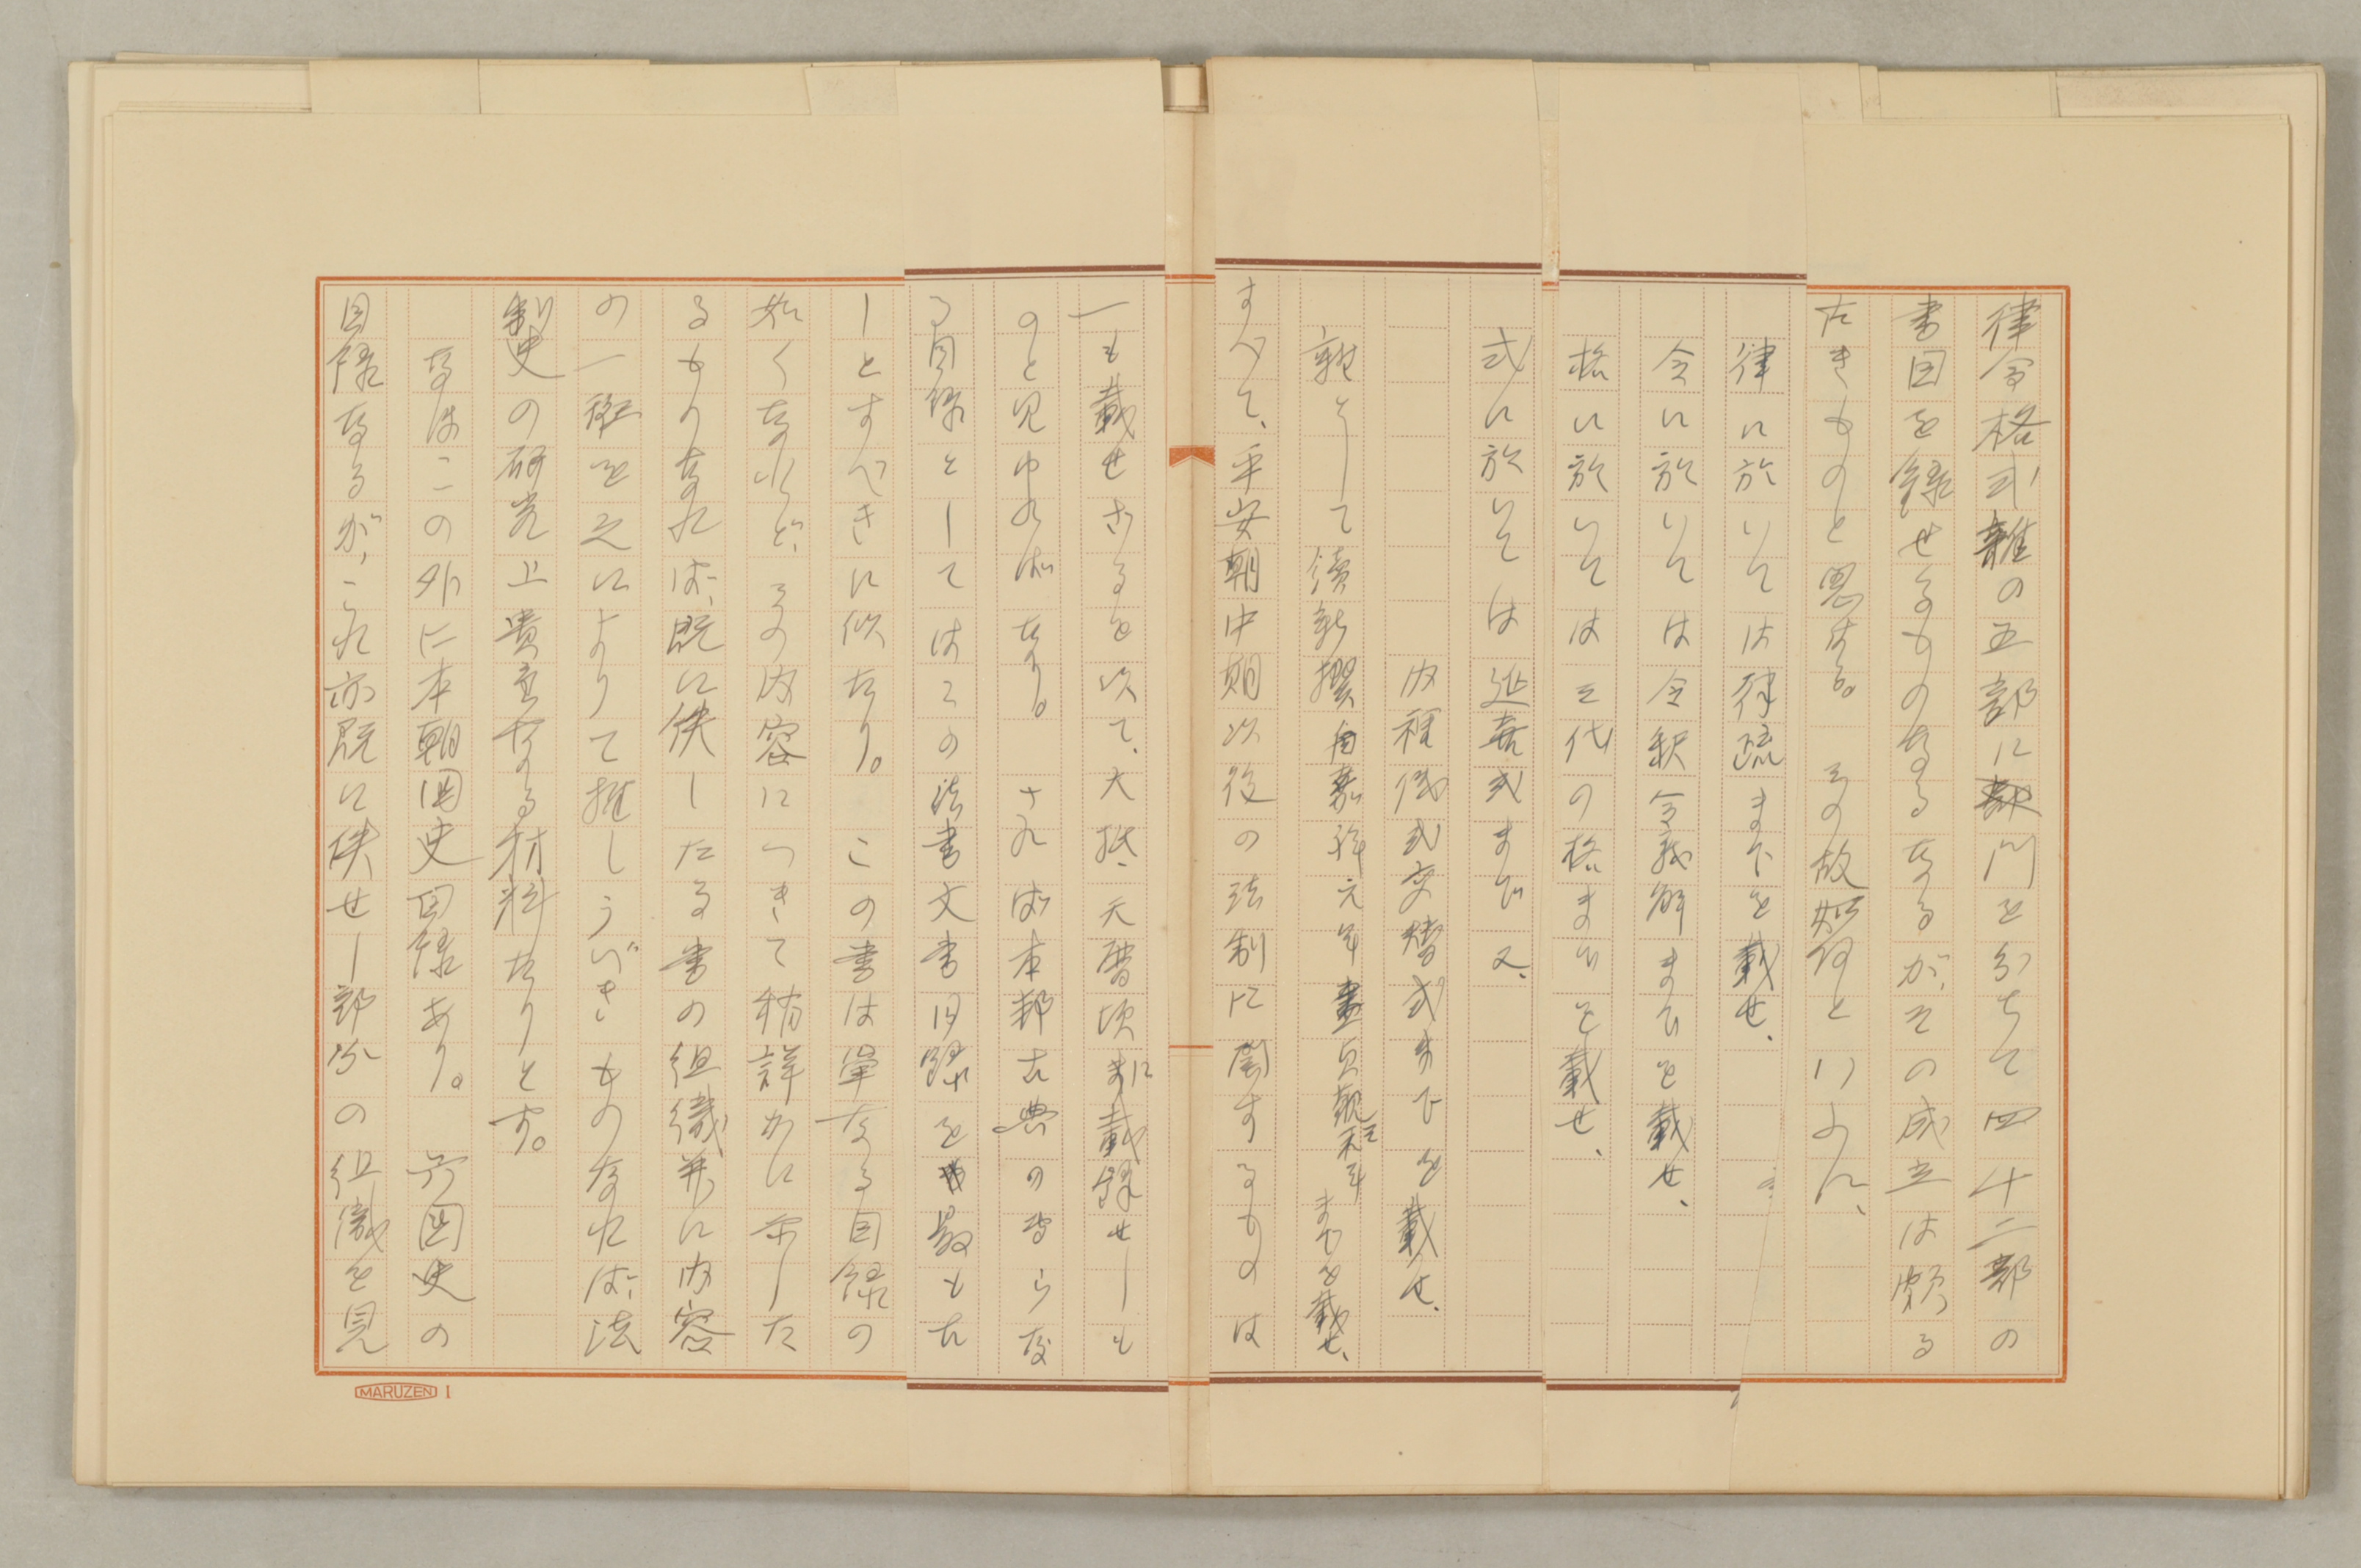 律令格式雑の五部に部門を分ちて四十二部の
書目を録せるものなるなるが、その成立は頗る
古きものと思はる。その故如何といふに、
律に於いては律疏までを載せ、
令に於いては令釈令義解までを載せ、
格に於いては三代の格までを載せ、
式に於いては延喜式まで又、
内裡儀式交替式までを載せ、
雑として續新撰自嘉祥元年盡貞観 までを載せ、
すべて、平安朝中期以後の法制に関するものは
一も載せざるを以て、大抵、天暦頃に載録せしも
のと見ゆればなり。されば本邦古典の みならな
る目録としてはこの法書文書目録を 最も古
しとすべきに似たり。この書は単なる目録の
如くなれど、その内容につきて稍詳かに示した
るものなれば、既に佚したる書の組織并に内容
の一斑を之によりて推しうべきものなれば、法
制史の研究上貴重なる材料なりとす。
なほこの外に本朝国史目録あり。六国史の
目録なるが、これ亦既に佚せし部分の組織を見
MARUZEN 1